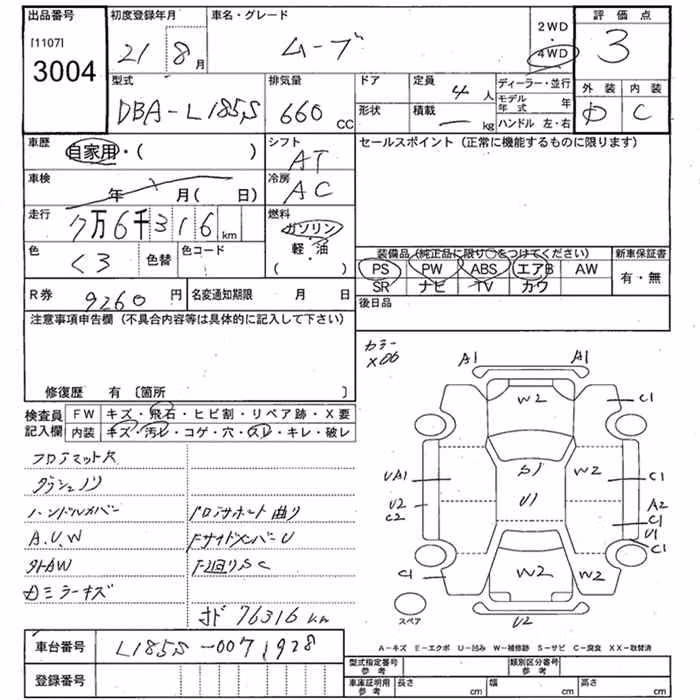 出品番号 初度登録年月 車名・グレード 2WD 評価点
[1107] 21 8月 ムーブ 4WD 3
3004
型式 排気量 ドア 定員 4人 ディーラー・並行 外装 内装
DBA-L185S 660 CC 形状 積載 ー kg モデル年式 年 D C
ハンドル 左・右
車歴 自家用・( ) シフト AT セールスポイント(正常に機能するものに限ります)
車検 年 月( 日) 冷房 AC
走行 7万6千316km 燃料 ガソリン・軽・油 ( )
色 クロ 色替 色コード 装備品(純正品に限り○をつけてください) 新車保証書
PS PW ABS エアB AW 有・無
SR ナビ TV カワ
R券 9260円 名変通知期限 月 日 後日品
注意事項申告欄(不具合内容等は具体的に記入して下さい)
修復歴 有〔箇所 〕
カラー
X06
A1 A1
W2 C1
検査員 FW キズ・飛石・ヒビ割・リペア跡・X要
記入欄 内装 キズ・汚レ・コゲ・穴・スレ・キレ・破レ
フロアマット欠
ダッシュノリ
ハンドルカバー コアサポート曲り
A.U.W FサイドメンバーU
外AW 下回りSC
ミラーキズ
オド 76316 km
S1 W2
UA1 U1 C1
U2 A2
C2 C1
U1
C1
C1 W2 W2
スペア U2
A-キズ E-エクボ U-凹み W-補修跡 S-サビ C-腐食 XX-取替済
車台番号 L185S-0071928
登録番号
型式指定番号 参考 類別区分番号 参考
車庫証明用 参考 長さ cm 幅 cm 高さ cm